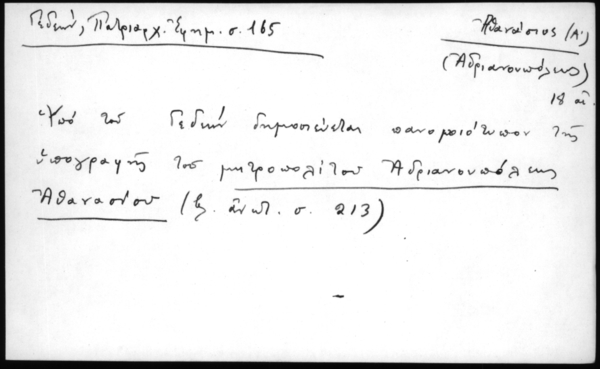 Γεδεών, Πατριαρχ. Ἐφημ. σ. 165
Ἀθανάσιος (Α')
(Ἀδριανουπόλεως)
18 αἰ.
Ὑπό τοῦ Γεδεών δημοσιεύεται πανομοιότυπον τῆς
ὑπογραφῆς τοῦ μητροπολίτου Ἀδριανουπόλεως
Ἀθανασίου (βλ. ἀνωτ. σ. 213)